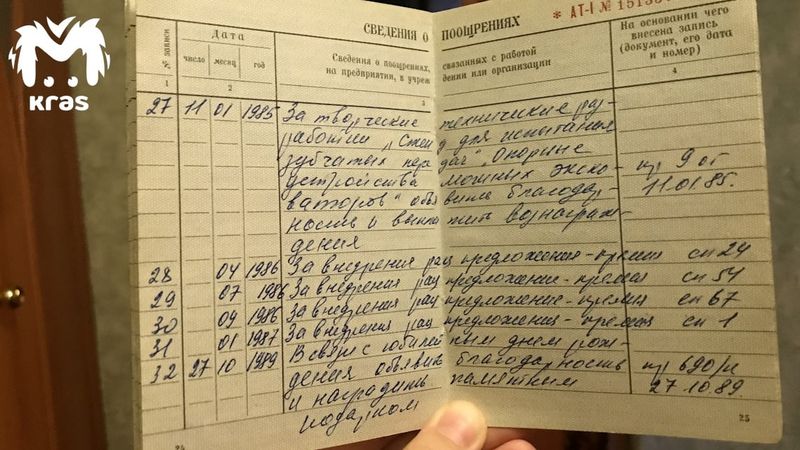 Kras
СВЕДЕНИЯ О ПООЩРЕНИЯХ
* АТ-I №
№ записи
Дата
число месяц год
Сведения о поощрениях, связанных с работой
на предприятии, в учреждении или организации
На основании чего
внесена запись
(документ, его дата
и номер)
1 2 3 4
27 11 01 1985 За творческие технические раз-
работки „Стенд для испытания
зубчатых передач". Опорные
устройства мощных экска- пр 9 от
ваторов" объявить благодар- 11.01.85.
ность и выплатить вознаграж-
дения
28 04 1986 За внедрения рац предложения - премия сп 24
29 07 1986 За внедрения рац предложение - премия сп 54
30 09 1986 За внедрения рац предложение - премия сп 67
31 01 1987 За внедрения рац предложения - премия сп 1
32 27 10 1989 В связи с юбилейным днем рож-
дения объявить благодарность пр 690/к
и наградить памятным 27.10.89
подарком
24
25